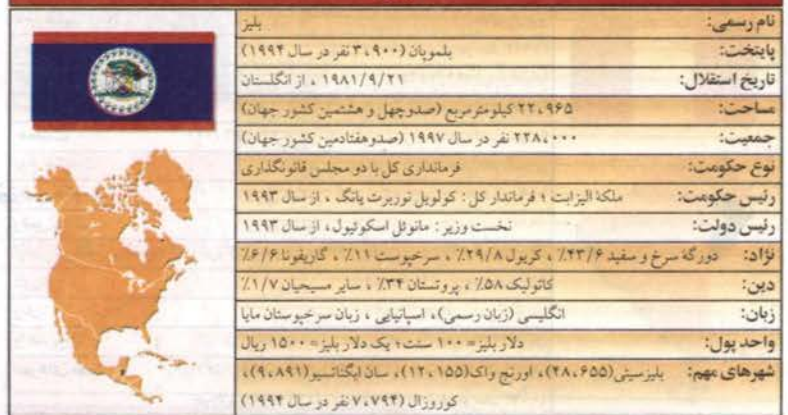 نام رسمی: بلیز
پایتخت: بلموپان (۳،۹۰۰ نفر در سال ۱۹۹۴)
تاریخ استقلال: ۱۹۸۱/۹/۲۱ ، از انگلستان
مساحت: ۲۲،۹۶۵ کیلومترمربع (صدوچهل و هشتمین کشور جهان)
جمعیت: ۲۲۸،۰۰۰ نفر در سال ۱۹۹۷ (صدوهفتادمین کشور جهان)
نوع حکومت: فرمانداری کل با دو مجلس قانونگذاری
رئیس حکومت: ملکهٔ الیزابت ؛ فرماندار کل : کولویل نوربرت یانگ ، از سال ۱۹۹۳
رئیس دولت: نخست وزیر : مانوئل اسکوئیول، از سال ۱۹۹۳
نژاد: دورگهٔ سرخ و سفید ۴۳/۶٪ ، کریول ۲۹/۸٪ ، سرخپوست ۱۱٪ ، گاریفونا ۶/۶٪
دین: کاتولیک ۵۸٪ ، پروتستان ۳۴٪ ، سایر مسیحیان ۱/۷٪
زبان: انگلیسی (زبان رسمی)، اسپانیایی ، زبان سرخپوستان مایا
واحد پول: دلار بلیز= ۱۰۰ سنت؛ یک دلار بلیز= ۱۵۰۰ ریال
شهرهای مهم: بلیزسیتی(۴۸،۶۵۵)، اورنج واک(۱۲،۱۵۵)، سان ایگناتسیو(۹،۸۹۱)،
کوروزال (۷،۷۹۴ نفر در سال ۱۹۹۴)